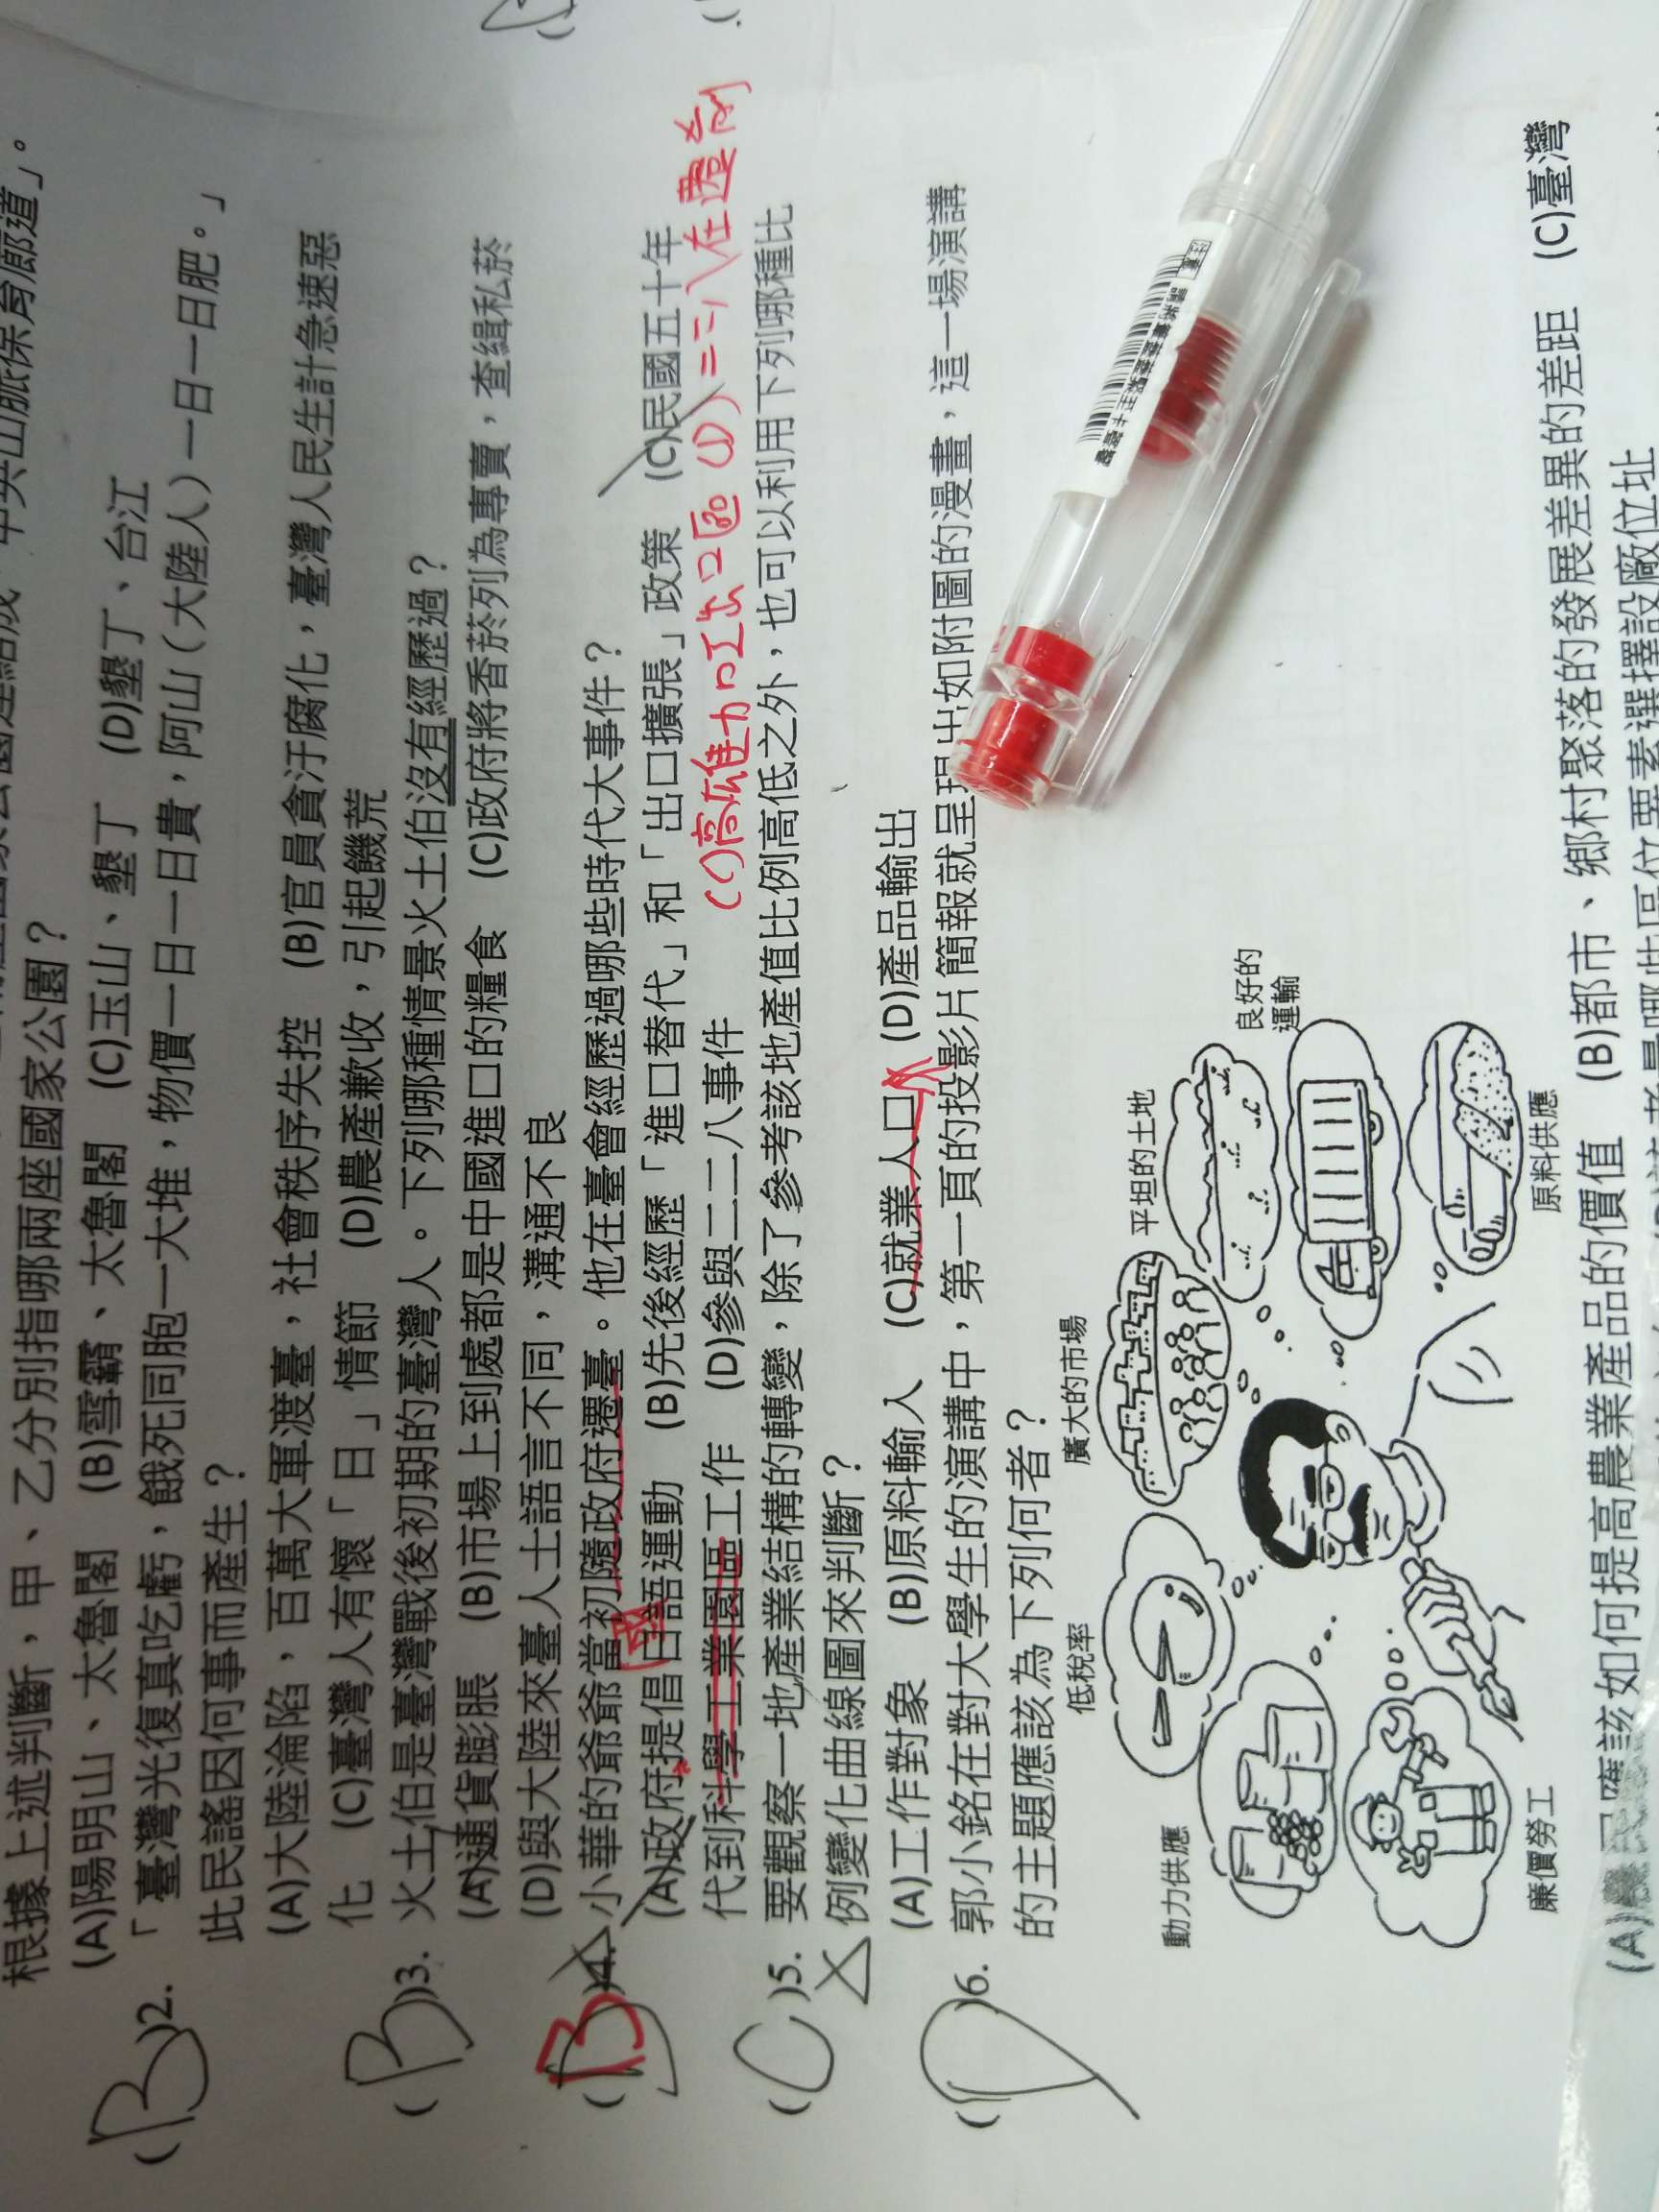 根據上述判斷，甲、乙分別指哪兩座國家公園？
(A)陽明山、太魯閣 (B)雪霸、太魯閣 (C)玉山、墾丁 (D)墾丁、台江
(B)2. 「臺灣光復真吃虧，餓死同胞一大堆，物價一日一日貴，阿山（大陸人）一日一日肥。」
此民謠因何事而產生？
(A)大陸淪陷，百萬大軍渡臺，社會秩序失控 (B)官員貪汙腐化，臺灣人民生計急速惡
化 (C)臺灣人有懷「日」情節 (D)農產歉收，引起饑荒
(B)3. 火土伯是臺灣戰後初期的臺灣人。下列哪種情景火土伯沒有經歷過？
(A)通貨膨脹 (B)市場上到處都是中國進口的糧食 (C)政府將香菸列為專賣，查緝私菸
(D)與大陸來臺人士語言不同，溝通不良
(B)4. 小華的爺爺當初隨政府遷臺。他在臺會經歷過哪些時代大事件？
國
(A)政府提倡台語運動 (B)先後經歷「進口替代」和「出口擴張」政策 (C)民國五十年
代到科學工業園區工作 (D)參與二二八事件
(C)高雄加工出口區
(C)5. 要觀察一地產業結構的轉變，除了參考該地產值比例高低之外，也可以利用下列哪種比
例變化曲線圖來判斷？
(A)工作對象 (B)原料輸入 (C)就業人口 (D)產品輸出
(D)6. 郭小銘在對大學生的演講中，第一頁的投影片簡報就呈現出如附圖的漫畫，這一場演講
的主題應該為下列何者？
動力供應
低稅率
廣大的市場
平坦的土地
良好的
運輸
廉價勞工
原料供應
(A)農民應該如何提高農業產品的價值 (B)都市、鄉村聚落的發展差異的差距 (C)臺灣